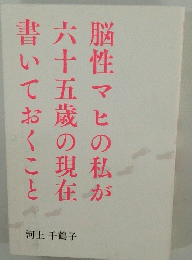 脳性マヒの私が
六十五歳の現在
書いておくこと
河上千鶴子